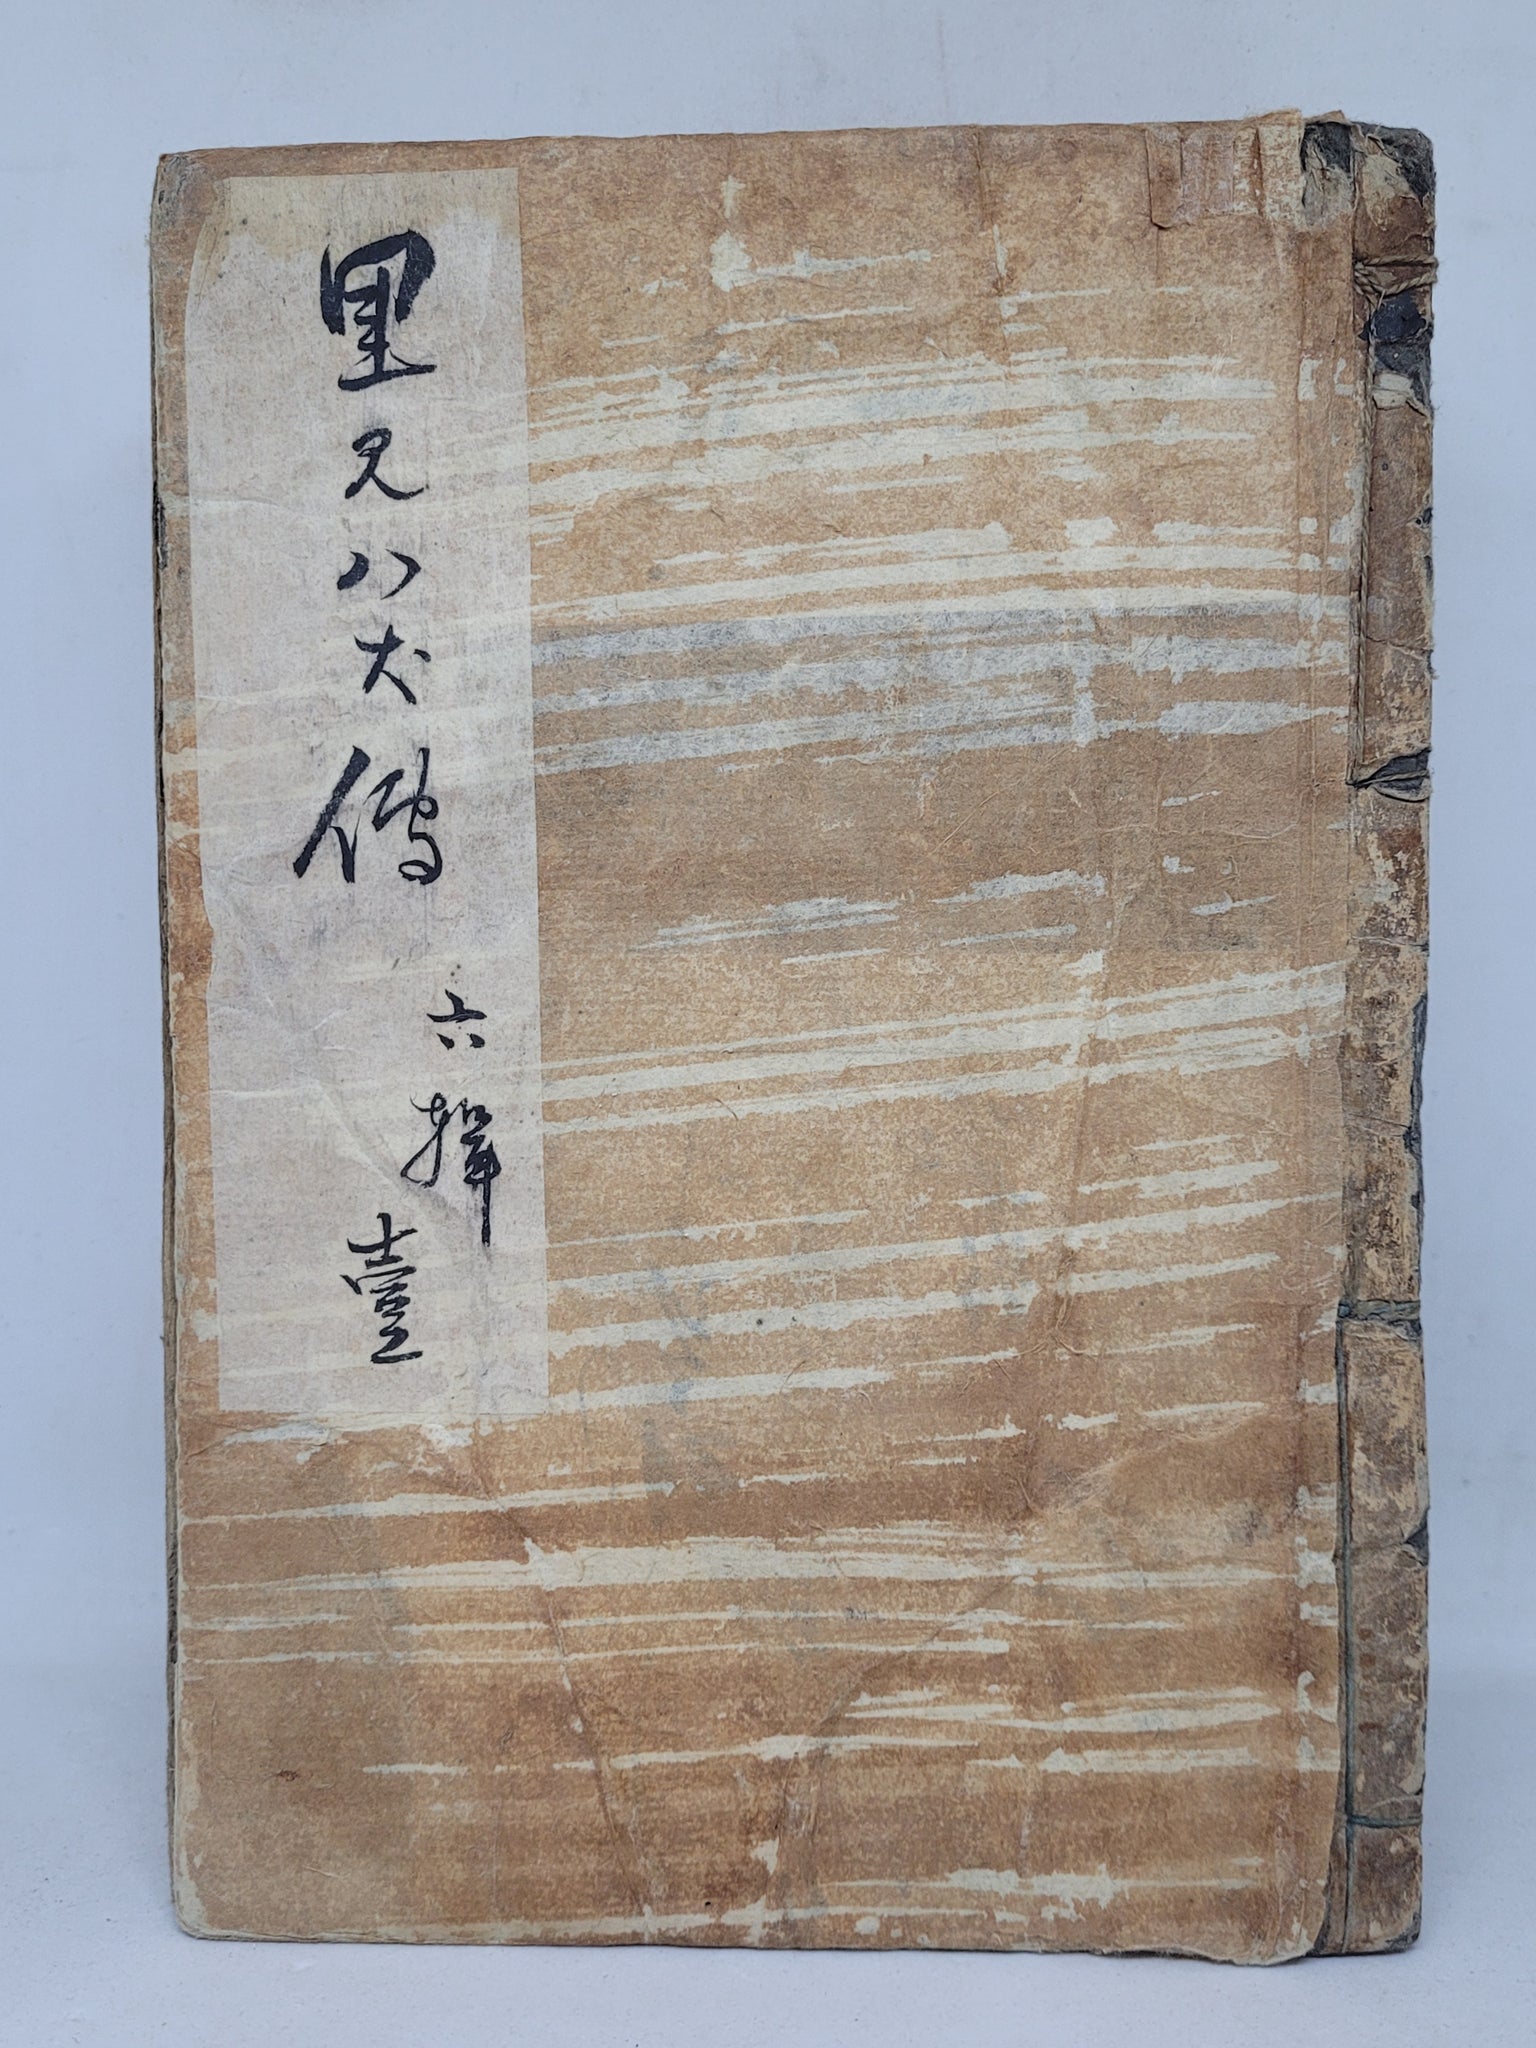 里見八犬傳
六輯
壹